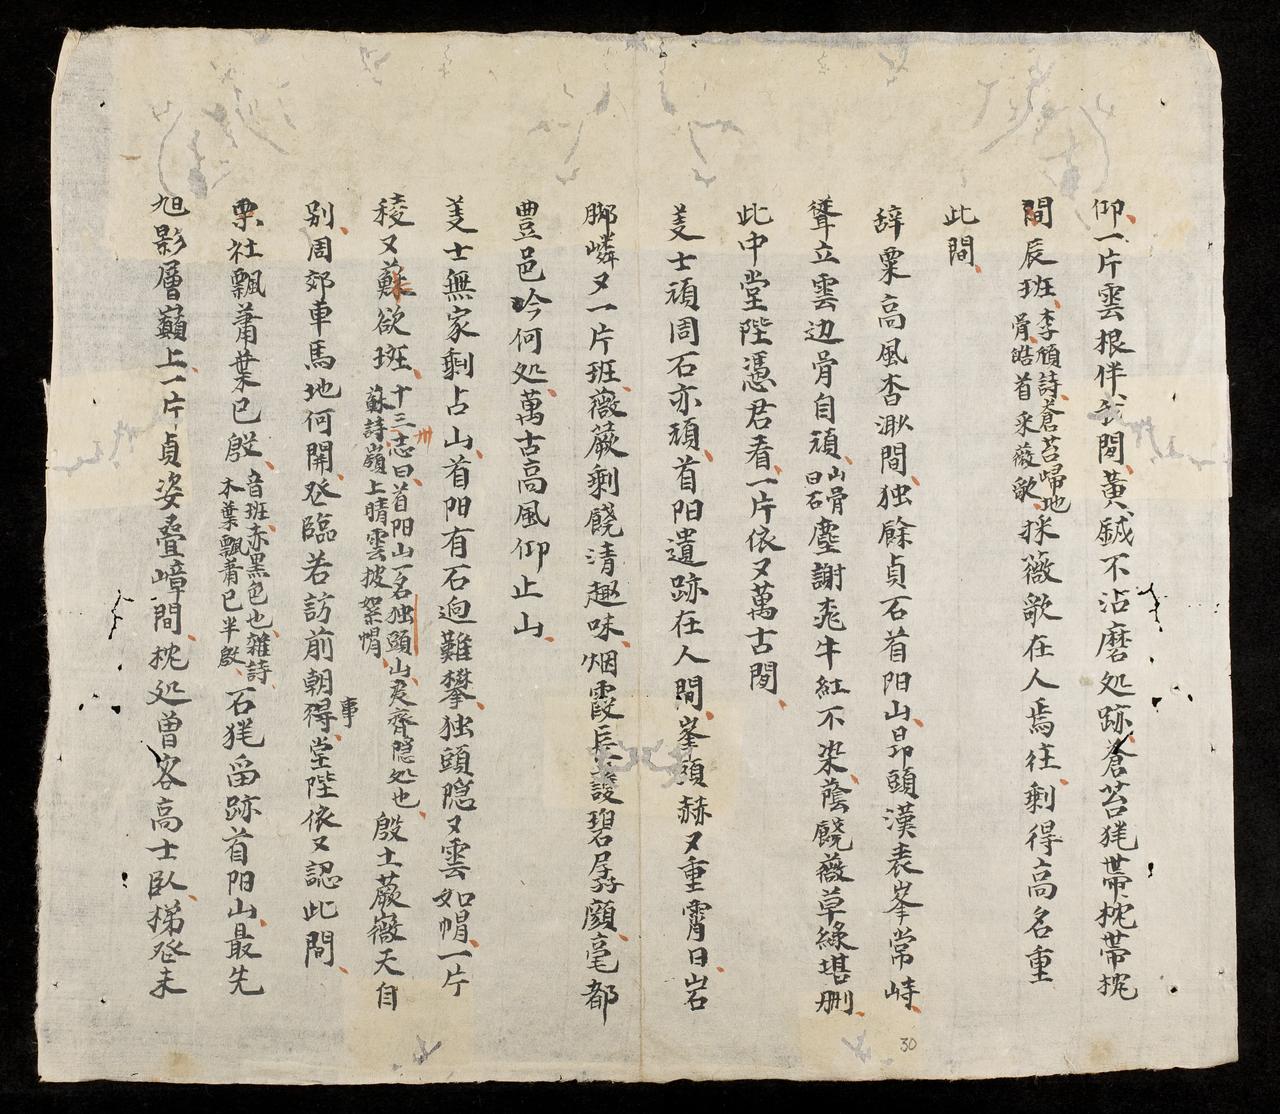 仰一片雲根伴我閱黃鉞不沾磨処跡蒼苔犹帶枕帶枕
間辰班李頎詩蒼苔歸地骨皓首采薇歌採薇歌在人焉往剩得高名重
此間
辞粟高風杳渺間独餘貞石首阳山昂頭漢表峯常峙
聳立雲边骨自頑山骨曰石塵謝兆牛紅不染蔭饒薇草綠堪删
此中堂陛憑君看一片依又萬古間
𦍌士頑周石亦頑首阳遺跡在人間峯頭赫又重霄日岩
脚嶙又一片班薇蕨剩饒清趣味烟霞長護碧孱顔毫都
豊邑吟何処萬古高風仰止山
𦍌士無家剩占山首阳有石迥難攀独頭隐又雲如帽一片
稜又蘇欲班十三志曰首阳山一名独頭山夷齊隐処也蘇詩嶺上晴雲披絮帽殷土蕨薇天自
别周郊車馬地何開登臨若訪前朝事得堂陛依又認此間
栗社飄蕭葉已殷音班赤黑色也雜詩木葉飄蕭已半殷石犹畄跡首阳山最先
旭影層巔上一片貞姿疊嶂間枕処曽容高士臥梯登未
30